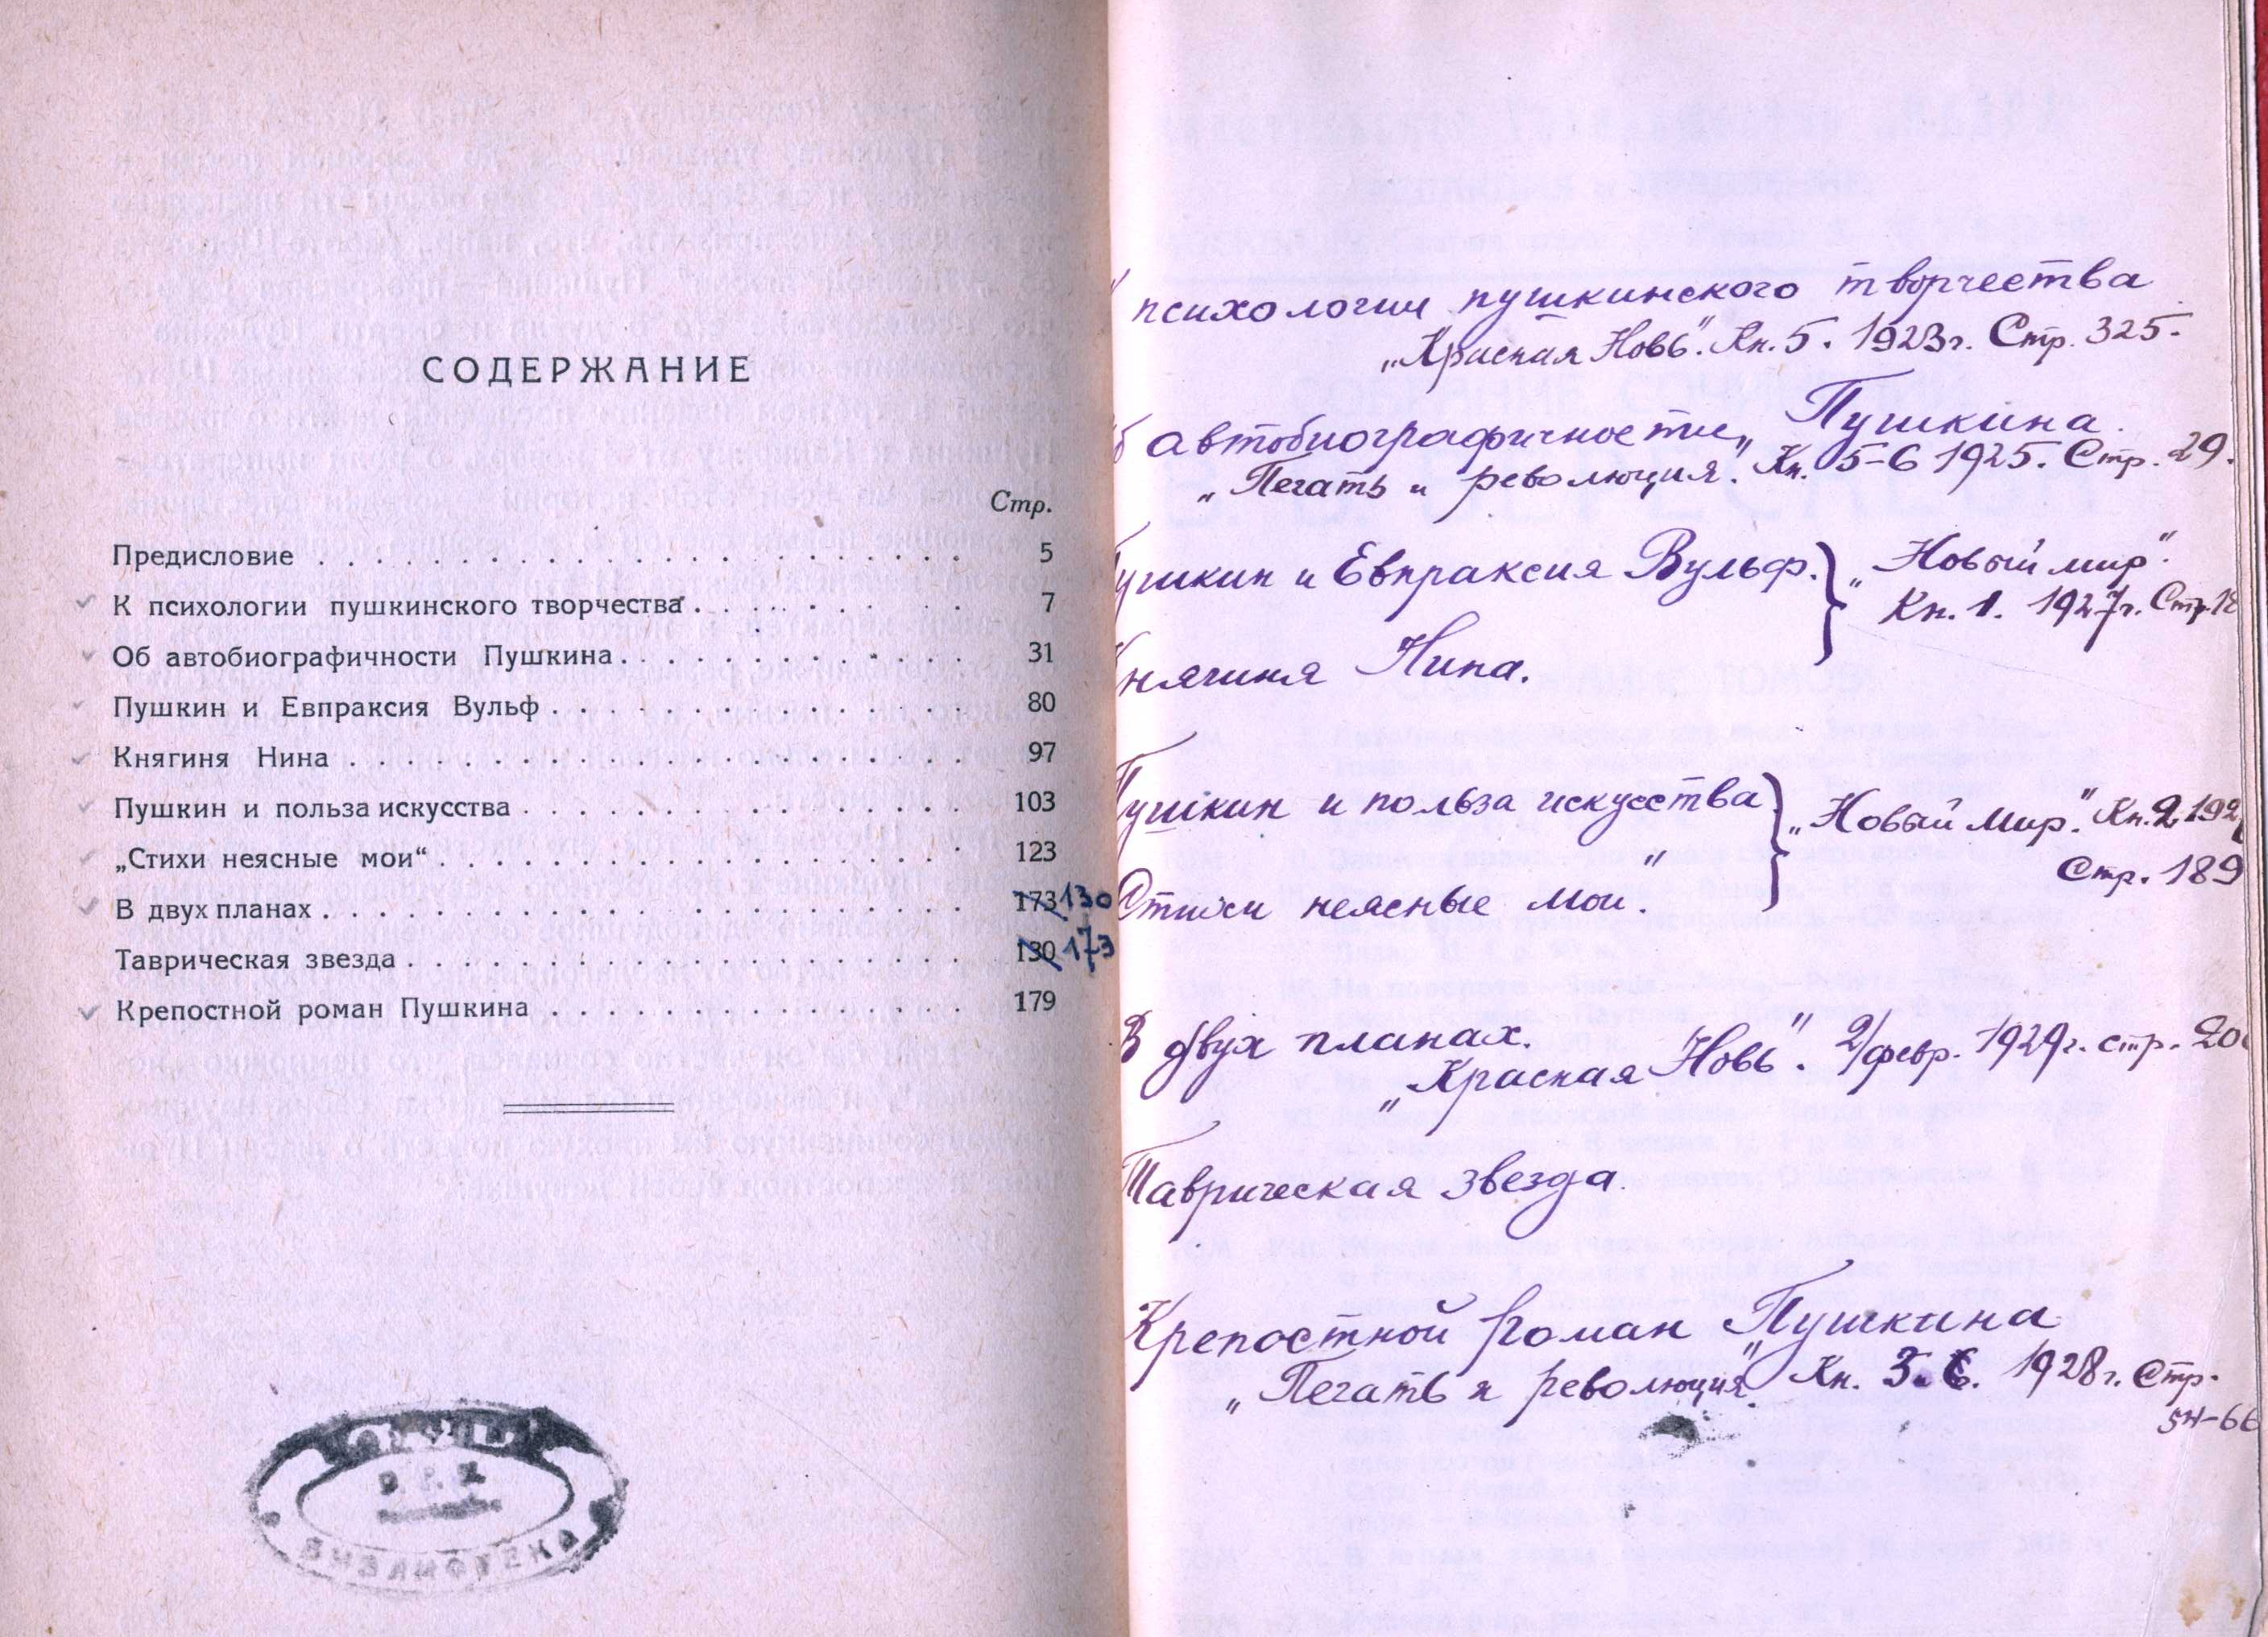 СОДЕРЖАНИЕ
Стр.
Предисловие . . . . . . . . . . . . . . . . . . . . 5
К психологии пушкинского творчества . . . . . . . . 7
Об автобиографичности Пушкина . . . . . . . . . . 31
Пушкин и Евпраксия Вульф . . . . . . . . . . . . . 80
Княгиня Нина . . . . . . . . . . . . . . . . . . . 97
Пушкин и польза искусства . . . . . . . . . . . . . 103
„Стихи неясные мои“ . . . . . . . . . . . . . . . . 123
В двух планах . . . . . . . . . . . . . . . . . . . 173 130
Таврическая звезда . . . . . . . . . . . . . . . . 130 173
Крепостной роман Пушкина . . . . . . . . . . . . . 179
БИБЛИОТЕКА
психологии пушкинского творчества
„Красная Новь". Кн. 5. 1923г. Стр. 325.
автобиографичности Пушкина.
„Печать и революция". Кн. 5-6 1925. Стр. 29.
Пушкин и Евпраксия Вульф. „Новый мир".
Кн. 1. 1927г. Стр.
Княгиня Нина.
Пушкин и польза искусства „Новый Мир". Кн. 2
Стр. 189
Стихи неясные мои."
В двух планах.
„Красная Новь". 2/февр. 1929г. стр.
Таврическая звезда.
Крепостной роман Пушкина
„Печать и революция" Кн. 1928г. Стр.